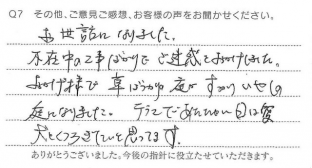 Q7 その他、ご意見ご感想、お客様の声をお聞かせください。
お世話になりました。
不在中の工事ばかりで ご迷惑をおかけしました。
おかげ様で 草ばかりの庭が すっかりいやしの
庭になりました。 テラスであたたかい日は愛
犬とくつろぎたいと思ってます。
ありがとうございました。今後の指針に役立たせていただきます。